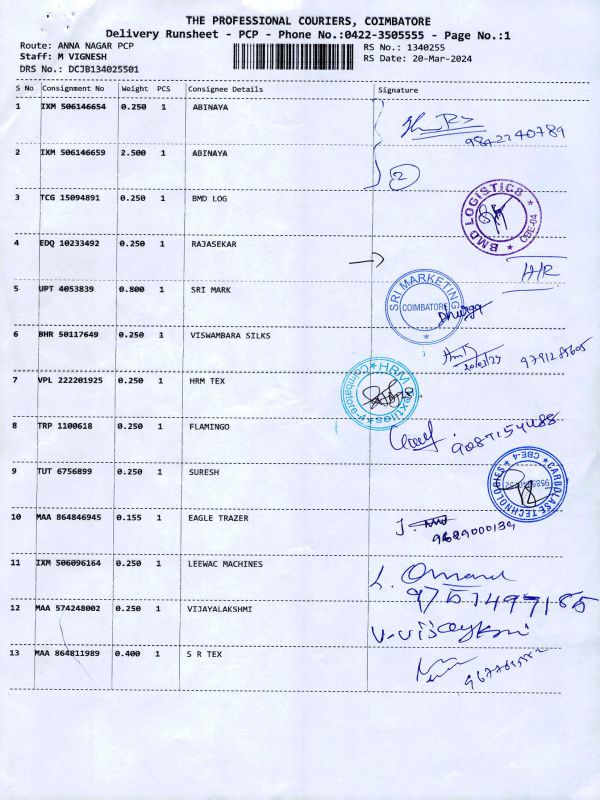 THE PROFESSIONAL COURIERS, COIMBATORE
Delivery Runsheet - PCP - Phone No.:0422-3505555 - Page No.:1
Route: ANNA NAGAR PCP
Staff: M VIGNESH
DRS No.: DCJB134025501
RS No.: 1340255
RS Date: 20-Mar-2024
S No Consignment No Weight PCS Consignee Details Signature
1 IXM 506146654 0.250 1 ABINAYA
9842240789
2 IXM 506146659 2.500 1 ABINAYA
2
3 TCG 15094891 0.250 1 BMD LOG
BMD LOGISTICS CBE-04
4 EDQ 10233492 0.250 1 RAJASEKAR
5 UPT 4053839 0.800 1 SRI MARK
SRI MARKETING COIMBATORE
6 BHR 50117649 0.250 1 VISWAMBARA SILKS
7 VPL 222201925 0.250 1 HRM TEX
HRM Textiles Coimbatore-4
8 TRP 1100618 0.250 1 FLAMINGO
9 TUT 6756899 0.250 1 SURESH
CARBOLASE TECHNOLOGIES CBE-4
10 MAA 864846945 0.155 1 EAGLE TRAZER
11 IXM 506096164 0.250 1 LEEWAC MACHINES
9751497185
12 MAA 574248002 0.250 1 VIJAYALAKSHMI
13 MAA 864811989 0.400 1 S R TEX